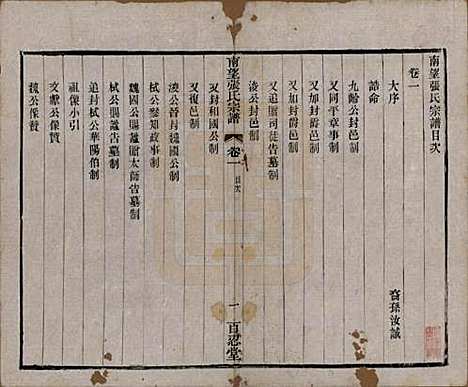 南望張氏宗譜目次
卷一
大序
裔孫汝誠
誥命
九齡公封邑制
又同平章事制
又加封爵邑制
又如封爵邑制
又追贈司徒告墓制
浚公封邑制
南望張氏宗譜
卷一
目次
一
百忍堂
又復邑制
又封和國公制
浚公晉封魏國公制
栻公叅知政事制
魏國公賜謚贈太師告墓制
栻公賜謚告墓制
追封栻公華陽伯制
祖像小引
文獻公像贊
魏公像贊